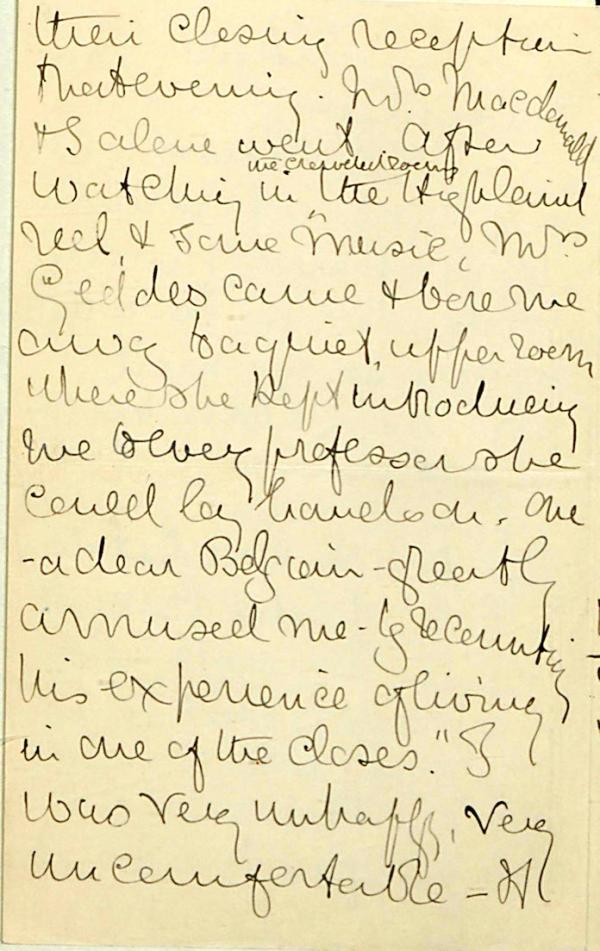 their closing reception
that evening. Mrs Macdonald
& I alone went. After
watching in the Highland
the crowded rooms
reel, & some "music", Mrs
Geddes came & bore me
away to a quiet, upper room
where she kept introducing
me to every professor she
could lay hands on. One
- a dear Belgian - greatly
amused me - by recounting
his experience of living
in one of the closes. " I
was very unhappy, very
uncomfortable - It